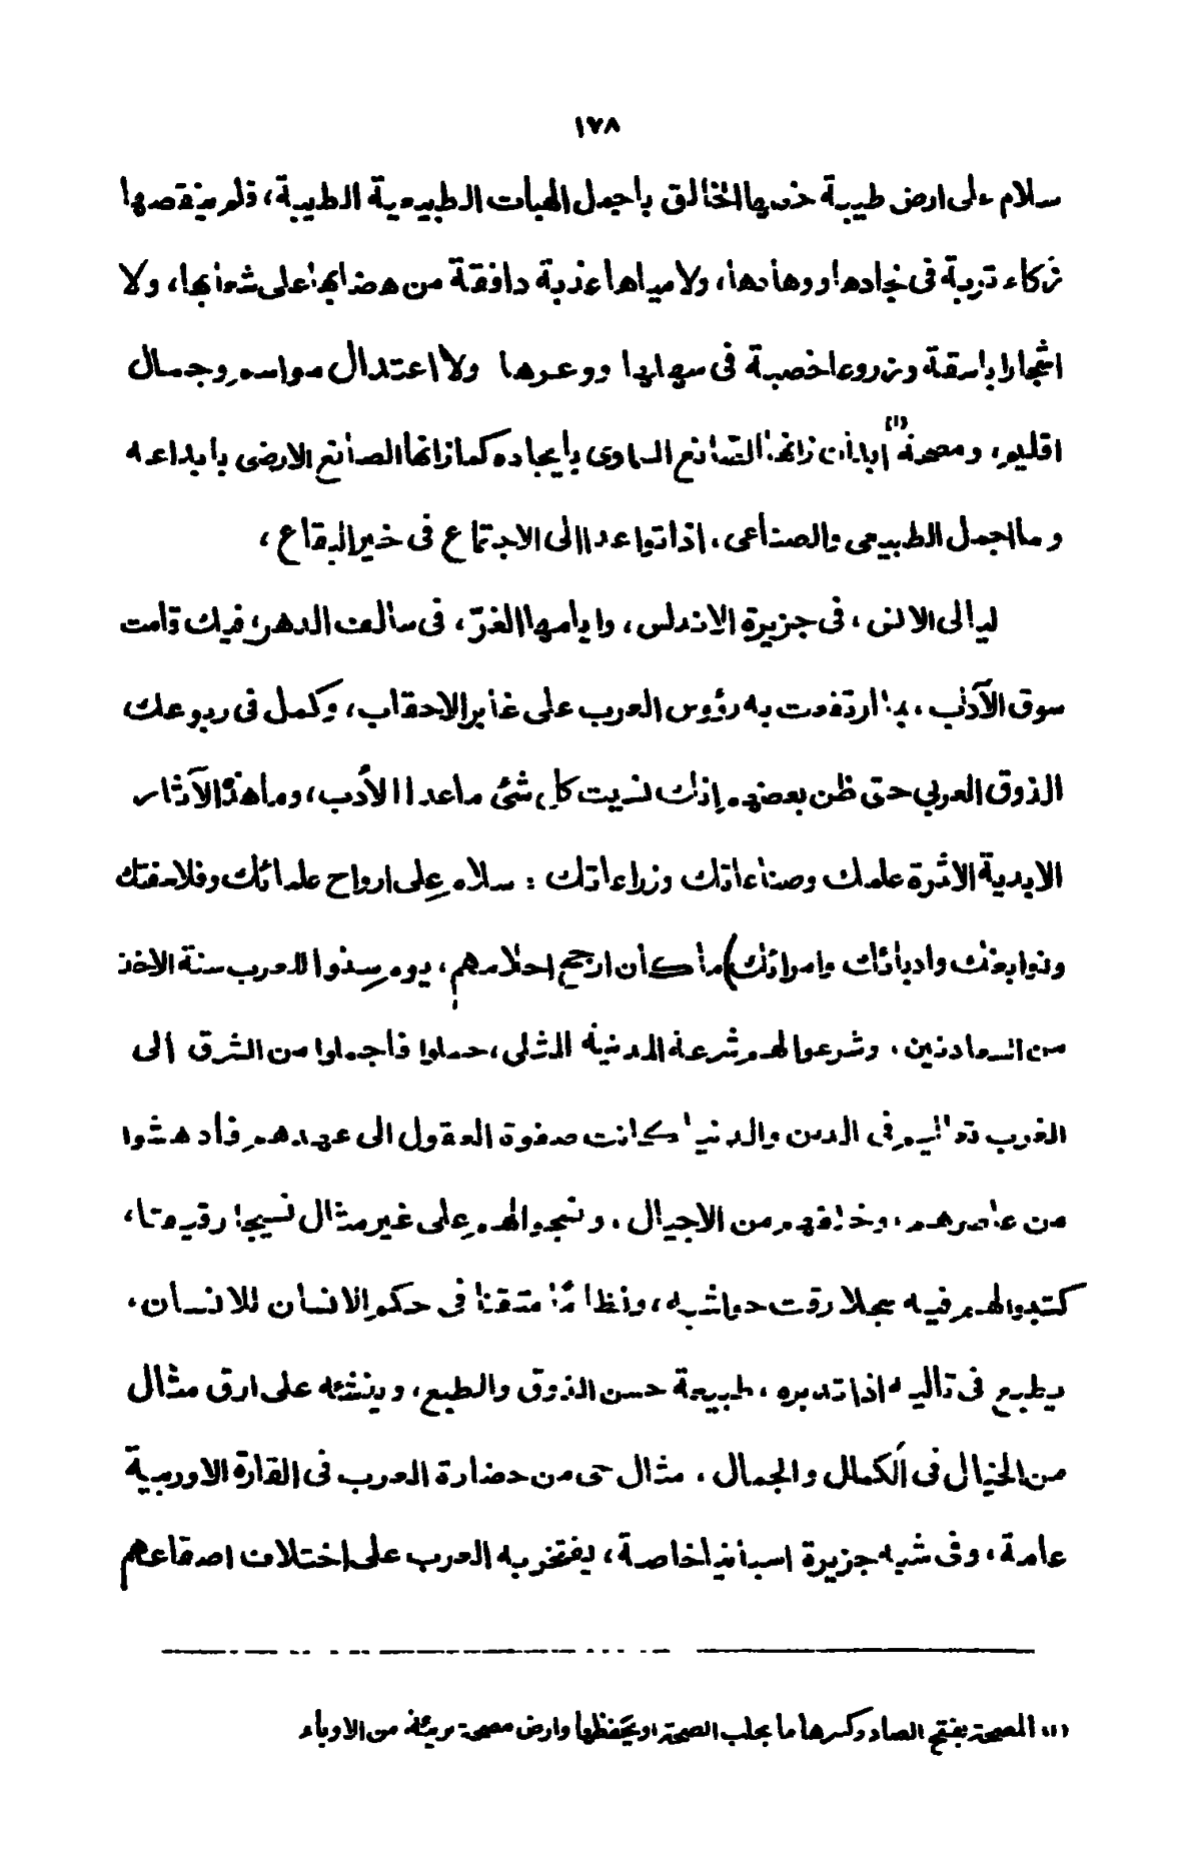 ١٧٨
سلام على ارض طيبة خصها الخالق باجمل الهبات الطبيعية الطيبة، فلم ينقصها
زكاء تربة فى نجادها ووهادها، ولا مياها عذبة دافقة من هضابها على شعابها، ولا
اشجارا باسقة وزروعا خصبة فى سهلها ووعرها ولا اعتدال مواسم وجمال
اقليم، ومصحة (١) أبدان زانها الصانع السماوى بايجاده كما زانها الصانع الارضى بابداعه
وما اجمل الطبيعى والصناعى، اذا تواعدا الى الاجتماع فى خير البقاع،
ليالى الانس، فى جزيرة الاندلس، وايامها الغرّ، فى سالف الدهر، فيك قامت
سوق الآداب، بما ارتفعت به رؤوس العرب على غابر الاحقاب، وكمل فى ربوعك
الذوق العربي حتى ظن بعضهم إنك نسيت كل شئ ماعدا الأدب، وما هذه الآثار
الابدية الاثمرة علمك وصناعاتك وزراعاتك: سلام على ارواح علمائك وفلاسفتك
ونوابغك وادبائك وامرائك) ما كان ارجح احلامهم، يوم سنوا للعرب سنة الاخذ
من السعادتين، وشرعوا لهم شرعة المدنية المثلى، حملوا فأجملوا من الشرق الى
الغرب تعاليم فى الدين والدنيا كانت صفوة العقول الى عهدهم فأدهشوا
من عاصرهم، وخلفهم من الاجيال، ونسجوا لهم على غير مثال نسيجا رقيعتا،
كتبوا لهم فيه سجلا رقت حواشيه، ونظامًا متقنا فى حكم الانسان للانسان،
يطبع فى تاليه اذا تدبره، طبيعة حسن الذوق والطبع، وينشئه على ارق مثال
من الخيال فى الكمال والجمال، مثال حى من حضارة العرب فى القارة الاوربية
عامة، وفى شبه جزيرة اسبانيا خاصة، يفتخر به العرب على اختلاف اصقاعهم
(١) المصحة بفتح الصاد وكسرها ما يجلب الصحة او يحفظها وارض مصحة بريئة من الاوباء